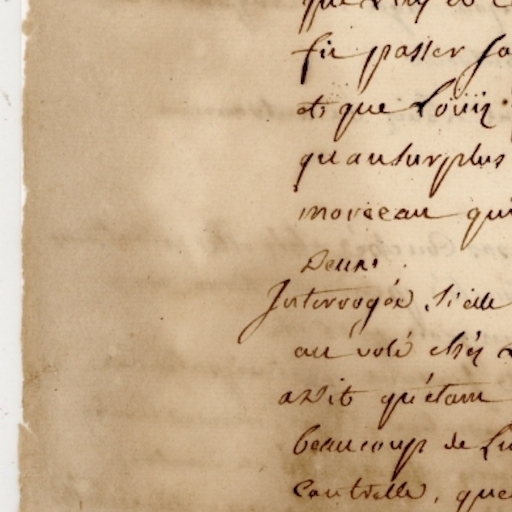 fit passer
et que Louis
qu'au surplus
morceau qui
deux.
Interrogée, si elle
au volé chés
a dit qu'étant
beaucoup de
Contrelle, que